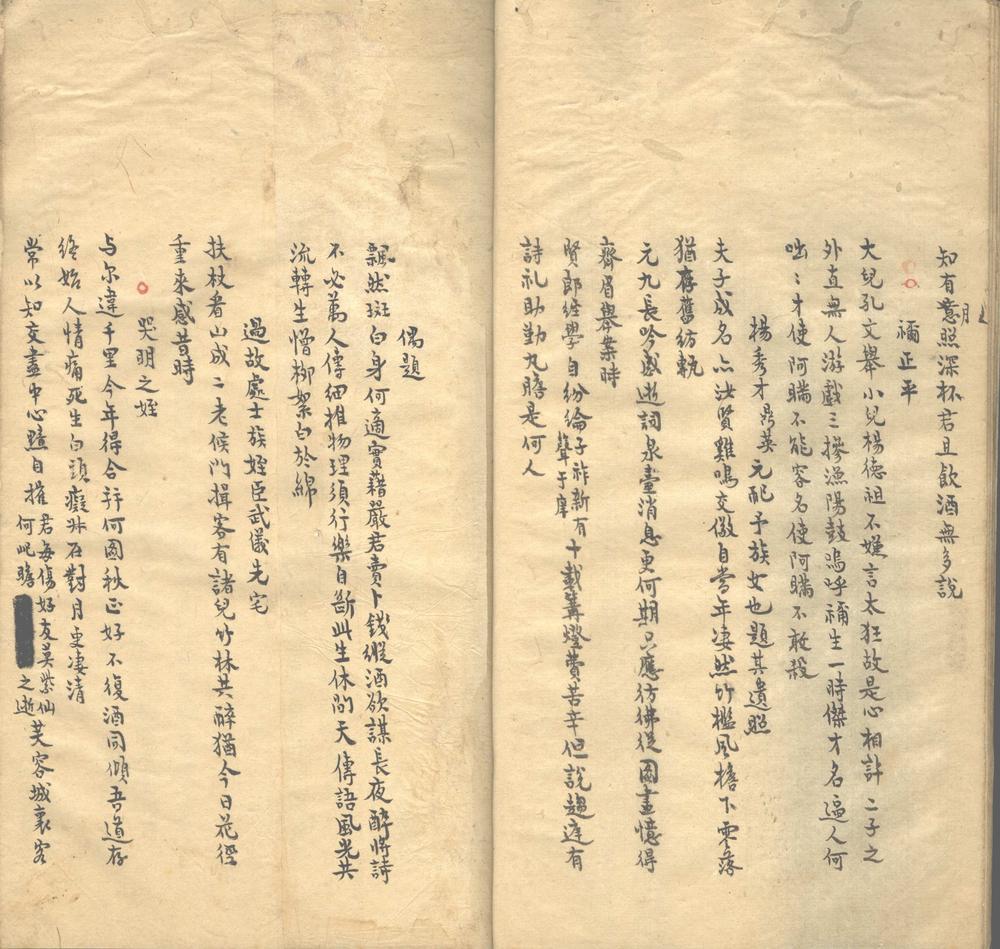 知有意照深杯君且飲酒無多說
月
禰正平
大兒孔文舉小兒楊德祖不嫌言太狂故是心相許二子之
外直無人游戲三摻漁陽鼓嗚呼禰生一時傑才名逼人何
咄咄才使阿瞞不能容名使阿瞞不敢殺
楊秀才 元配予族女也題其遺照
夫子成名亦汝賢雞鳴交儆自當年凄然竹檻風檐下零落
猶存舊紡軌
元九長吟感逝詞泉臺消息更何期只應彷彿從圖畫憶得
齊眉舉案時
賢郎經學自紛綸子祚新有聲于庠十載篝燈費苦辛但說趨庭有
詩礼助勤丸膽是何人
偶題
飄然斑白身何適實藉嚴君賣卜錢縱酒欲謀長夜醉將詩
不必萬人傳細推物理須行樂自斷此生休問天傳語風光共
流轉生憎柳絮白於綿
過故處士族姪臣武儀先宅
扶杖看山成二老候門揖客有諸兒竹林共醉猶今日花徑
重來感昔時
哭明之姪
与尔違千里今年得合并何圖秋正好不復酒同傾吾道存
終始人情痛死生白頭癡叔在對月更凄清
常以知交盡中心黯自摧君每傷好友吳紫仙何岘瞻之逝芙容城裏客